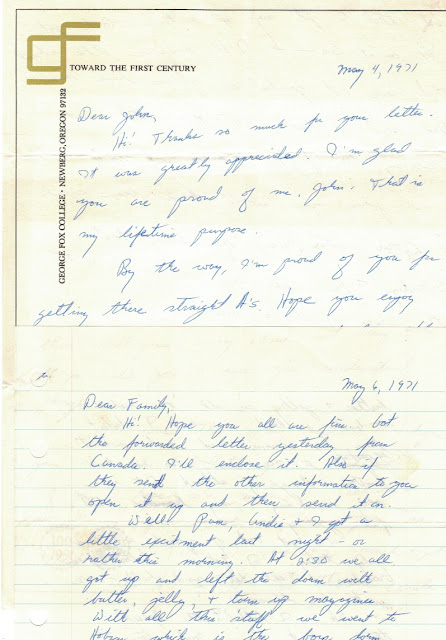 gf
TOWARD THE FIRST CENTURY
GEORGE FOX COLLEGE • NEWBERG, OREGON 97132
May 4, 1971
Dear John,
Hi! Thanks so much for your letter.
It was greatly appreciated. I'm glad
you are proud of me, John. That is
my lifetime purpose.
By the way, I'm proud of you for
getting there straight A's. Hope you enjoy
May 6, 1971
Dear Family,
Hi! Hope you all are fine. Got
the forwarded letter yesterday from
Canada. I'll enclose it. Also if
they send the other information to you
open it up and then send it on.
Well Pam, Cindie & I got a
little excitment last night - or
rather this morning. At 2:30 we all
got up and left the dorm with
butter, jelly, & torn up magazines
With all this stuff we went to
Hobson which is the boys dorm